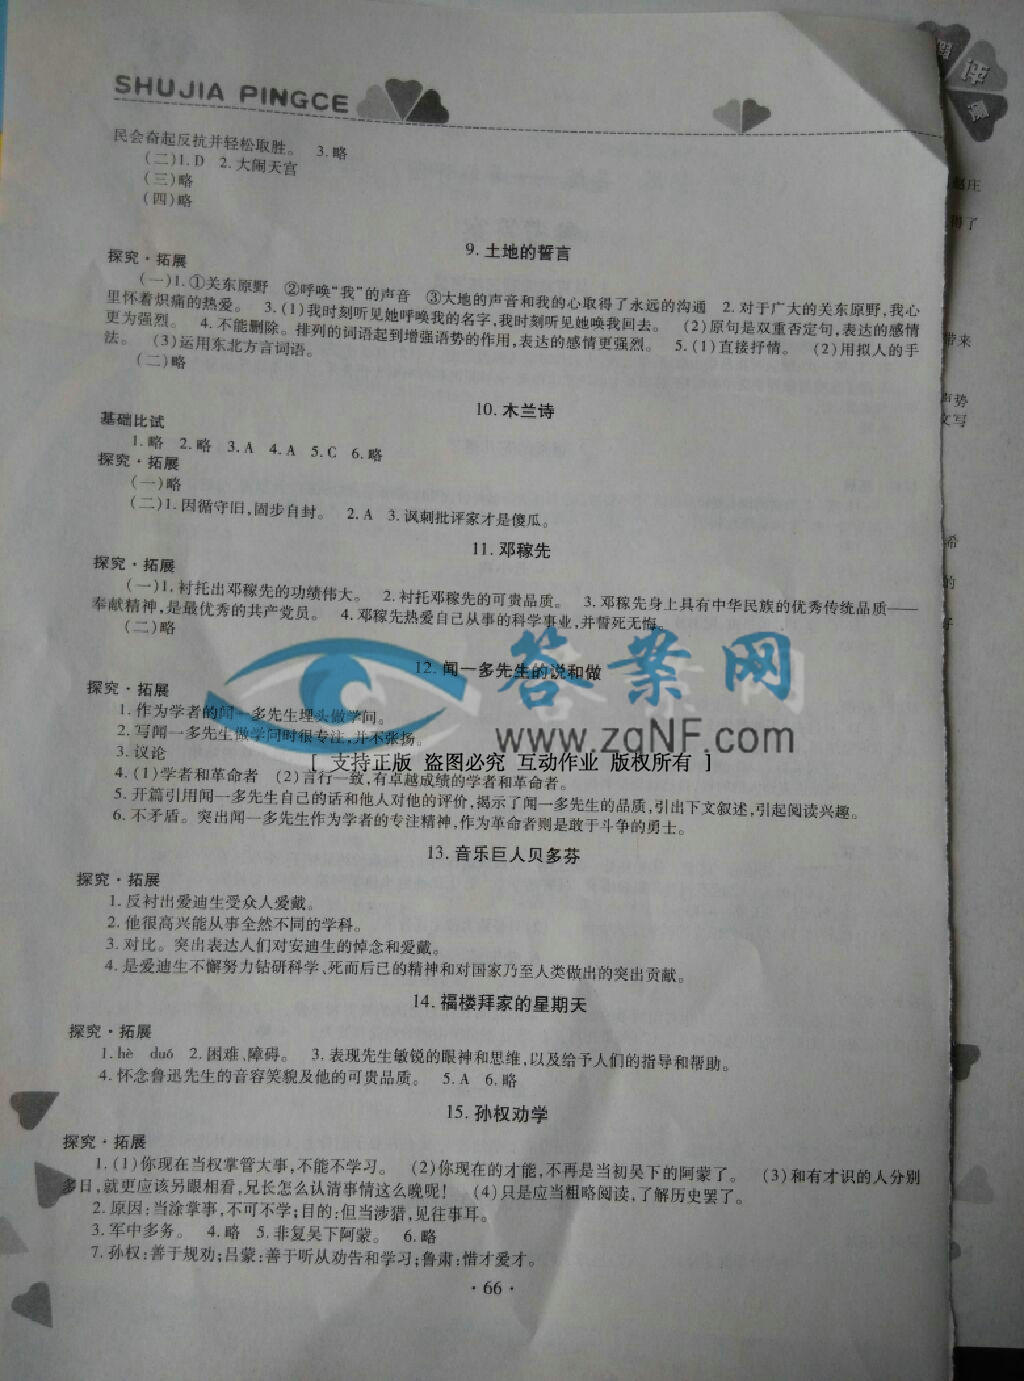 SHUJIA PINGCE
民会奋起反抗并轻松取胜。 3.略
(二)1.D 2.大闹天宫
(三)略
(四)略
9.土地的誓言
探究·拓展
(一)1.①关东原野 ②呼唤“我”的声音 ③大地的声音和我的心取得了永远的沟通 2.对于广大的关东原野,我心
里怀着炽痛的热爱。 3.(1)我时刻听见她呼唤我的名字,我时刻听见她唤我回去。 (2)原句是双重否定句,表达的感情
更为强烈。 4.不能删除。排列的词语起到增强语势的作用,表达的感情更强烈。 5.(1)直接抒情。 (2)用拟人的手
法。 (3)运用东北方言词语。
(二)略
10.木兰诗
基础比试
1.略 2.略 3.A 4.A 5.C 6.略
探究·拓展
(一)略
(二)1.因循守旧,固步自封。 2.A 3.讽刺批评家才是傻瓜。
11.邓稼先
探究·拓展
(一)1.衬托出邓稼先的功绩伟大。 2.衬托邓稼先的可贵品质。 3.邓稼先身上具有中华民族的优秀传统品质——
奉献精神,是最优秀的共产党员。 4.邓稼先热爱自己从事的科学事业,并誓死无悔。
(二)略
12.闻一多先生的说和做
探究·拓展
1.作为学者的闻一多先生埋头做学问。
2.写闻一多先生做学问时很专注,并不张扬。
3.议论
4.(1)学者和革命者 (2)言行一致,有卓越成绩的学者和革命者。
5.开篇引用闻一多先生自己的话和他人对他的评价,揭示了闻一多先生的品质,引出下文叙述,引起阅读兴趣。
6.不矛盾。突出闻一多先生作为学者的专注精神,作为革命者则是敢于斗争的勇士。
答案网
www.zqNF.com
[ 支持正版 盗图必究 互动作业 版权所有 ]
13.音乐巨人贝多芬
探究·拓展
1.反衬出爱迪生受众人爱戴。
2.他很高兴能从事全然不同的学科。
3.对比。突出表达人们对安迪生的悼念和爱戴。
4.是爱迪生不懈努力钻研科学、死而后已的精神和对国家乃至人类做出的突出贡献。
14.福楼拜家的星期天
探究·拓展
1.hè duó 2.困难、障碍。 3.表现先生敏锐的眼神和思维,以及给予人们的指导和帮助。
4.怀念鲁迅先生的音容笑貌及他的可贵品质。 5.A 6.略
15.孙权劝学
探究·拓展
1.(1)你现在当权掌管大事,不能不学习。 (2)你现在的才能,不再是当初吴下的阿蒙了。 (3)和有才识的人分别
多日,就更应该另眼相看,兄长怎么认清事情这么晚呢! (4)只是应当粗略阅读,了解历史罢了。
2.原因:当涂掌事,不可不学;目的:但当涉猎,见往事耳。
3.军中多务。 4.略 5.非复吴下阿蒙。 6.略
7.孙权:善于规劝;吕蒙:善于听从劝告和学习;鲁肃:惜才爱才。
·66·
得了
带来
声势
文写
希
的
好